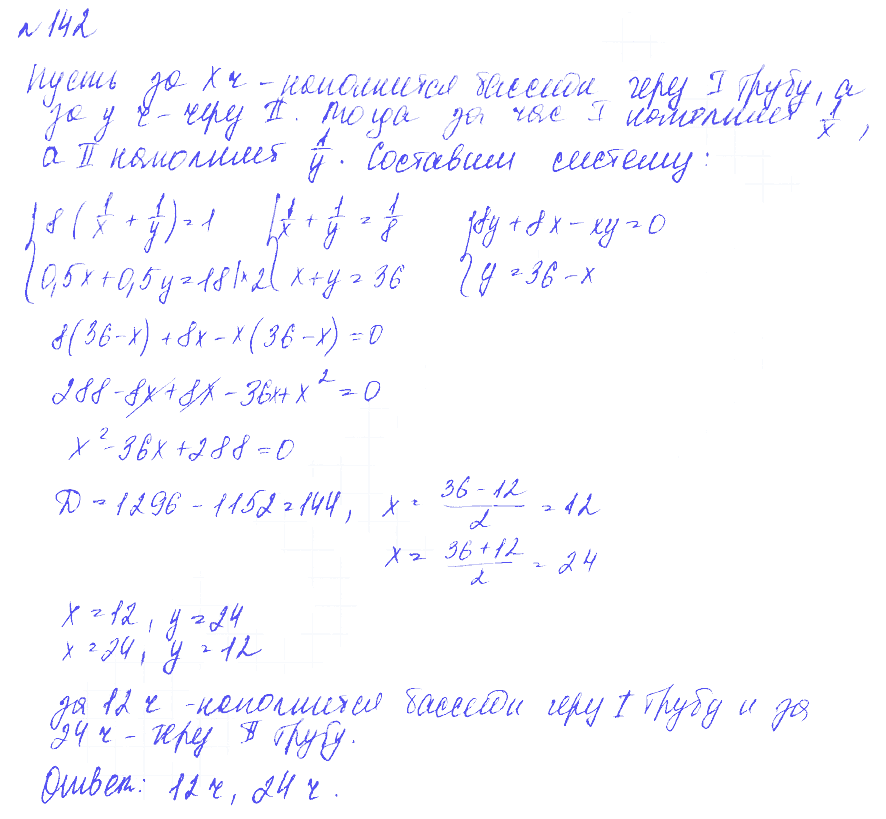 №142
Пусть за x ч - наполнится бассейн через I трубу, а
за y ч - через II. Тогда за час I наполнит 1/x,
а II наполнит 1/y. Составим систему:
{8(1/x + 1/y) = 1 {1/x + 1/y = 1/8 {8y + 8x - xy = 0
{0,5x + 0,5y = 18 |×2 {x + y = 36 {y = 36 - x
8(36 - x) + 8x - x(36 - x) = 0
288 - 8x + 8x - 36x + x² = 0
x² - 36x + 288 = 0
D = 1296 - 1152 = 144, x = (36 - 12)/2 = 12
x = (36 + 12)/2 = 24
x = 12, y = 24
x = 24, y = 12
за 12 ч - наполнится бассейн через I трубу и за
24 ч - через II трубу.
Ответ: 12 ч, 24 ч.